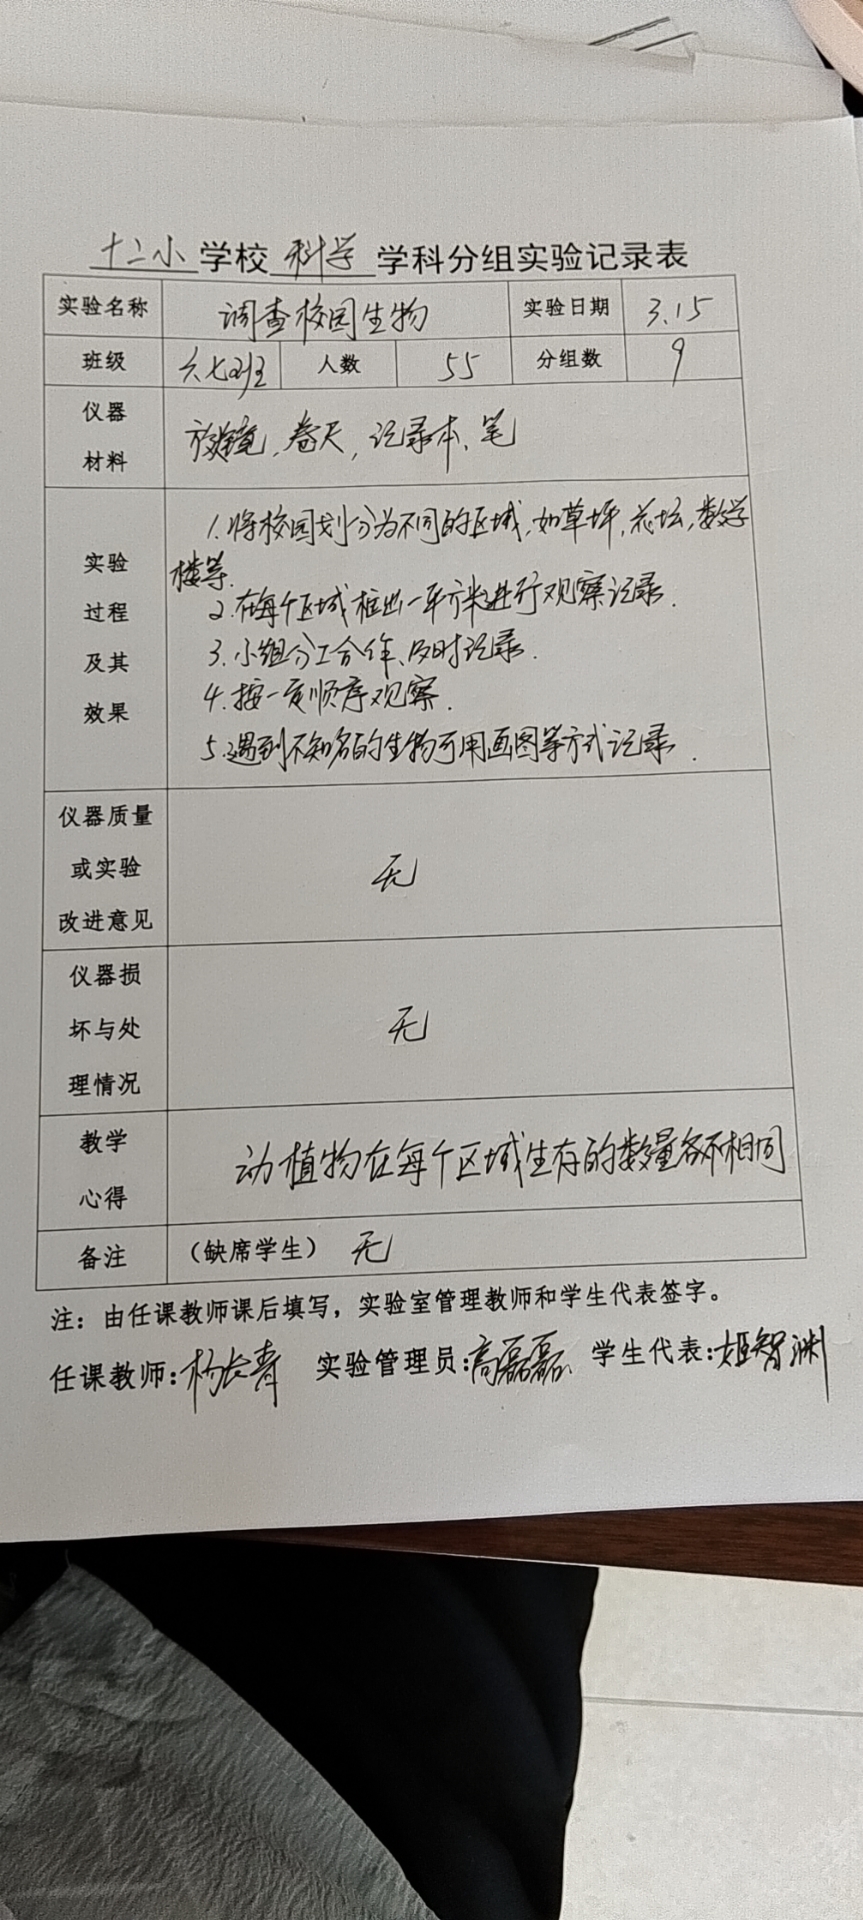 十二小学校科学学科分组实验记录表
实验名称 调查校园生物 实验日期 3.15
班级 六七班 人数 55 分组数 9
仪器
材料
放大镜,卷尺,记录本、笔
实验
过程
及其
效果
1.将校园划分为不同的区域,如草坪,花坛,教学
楼等.
2.在每个区域框出一平方米进行观察记录.
3.小组分工合作、及时记录.
4.按一定顺序观察.
5.遇到不知名的生物可用画图等方式记录.
仪器质量
或实验
改进意见
无
仪器损
坏与处
理情况
无
教学
心得
动植物在每个区域生存的数量各不相同
备注 (缺席学生) 无
注:由任课教师课后填写,实验室管理教师和学生代表签字。
任课教师:杨长青 实验管理员:高磊磊 学生代表:姬智渊